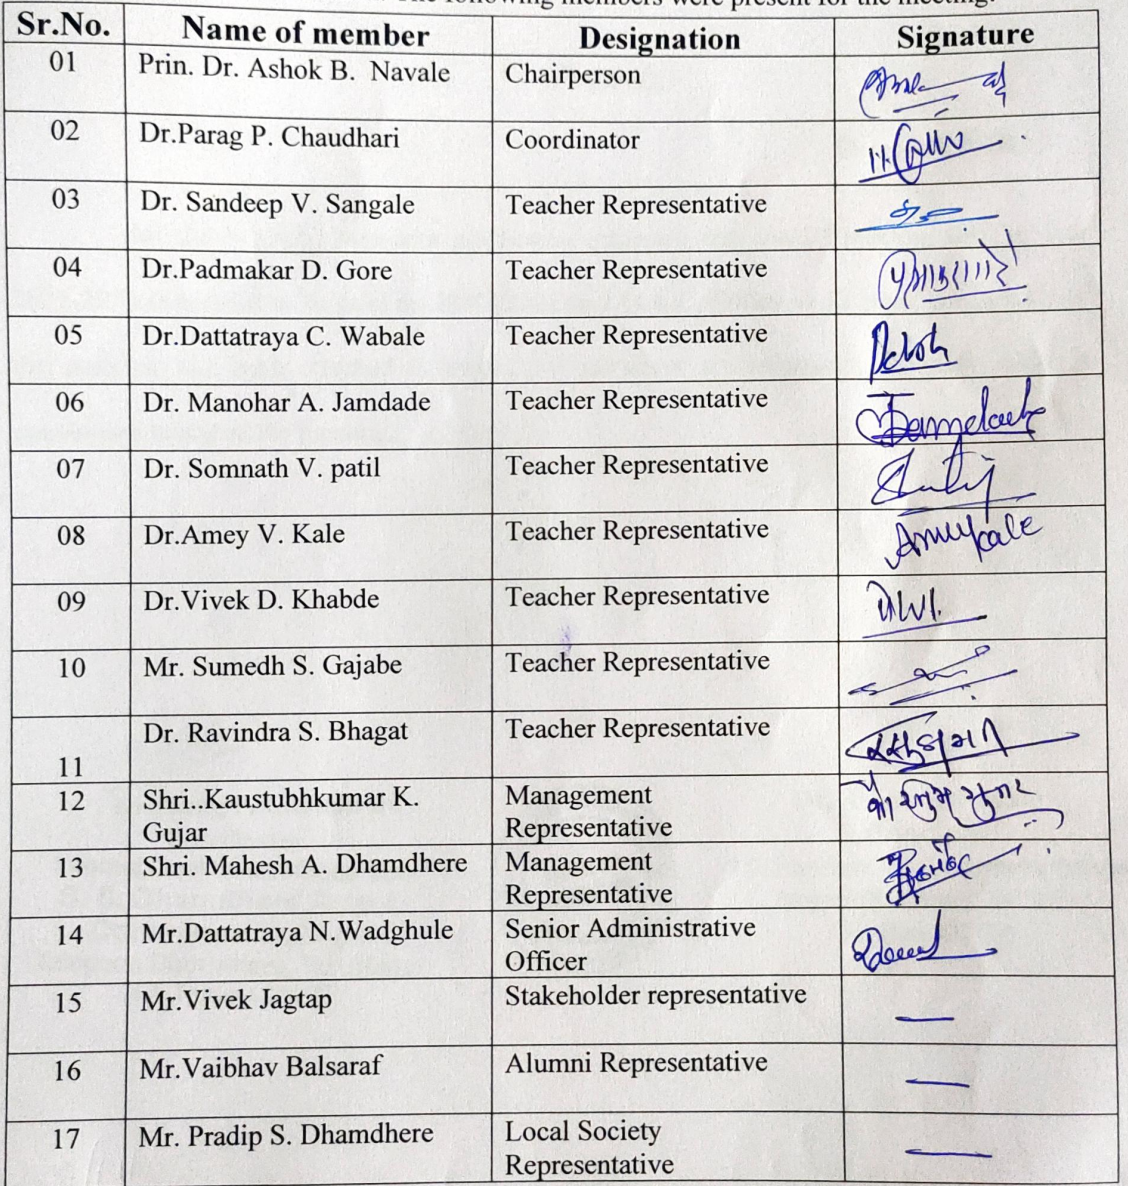 The following members were present for the meeting.
Sr.No. Name of member Designation Signature
01 Prin. Dr. Ashok B. Navale Chairperson
02 Dr.Parag P. Chaudhari Coordinator
03 Dr. Sandeep V. Sangale Teacher Representative
04 Dr.Padmakar D. Gore Teacher Representative
05 Dr.Dattatraya C. Wabale Teacher Representative
06 Dr. Manohar A. Jamdade Teacher Representative
07 Dr. Somnath V. patil Teacher Representative
08 Dr.Amey V. Kale Teacher Representative
09 Dr.Vivek D. Khabde Teacher Representative
10 Mr. Sumedh S. Gajabe Teacher Representative
Dr. Ravindra S. Bhagat Teacher Representative
11
12 Shri..Kaustubhkumar K. Management
Gujar Representative
13 Shri. Mahesh A. Dhamdhere Management
Representative
14 Mr.Dattatraya N.Wadghule Senior Administrative
Officer
15 Mr.Vivek Jagtap Stakeholder representative —
16 Mr.Vaibhav Balsaraf Alumni Representative —
17 Mr. Pradip S. Dhamdhere Local Society —
Representative